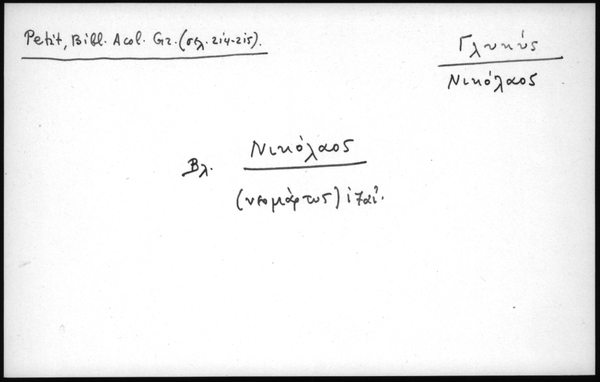 Petit, Bibl. Acol. Gr. (σελ. 214-215).
Γλυκύς
Νικόλαος
Βλ. Νικόλαος
(νεομάρτυς)